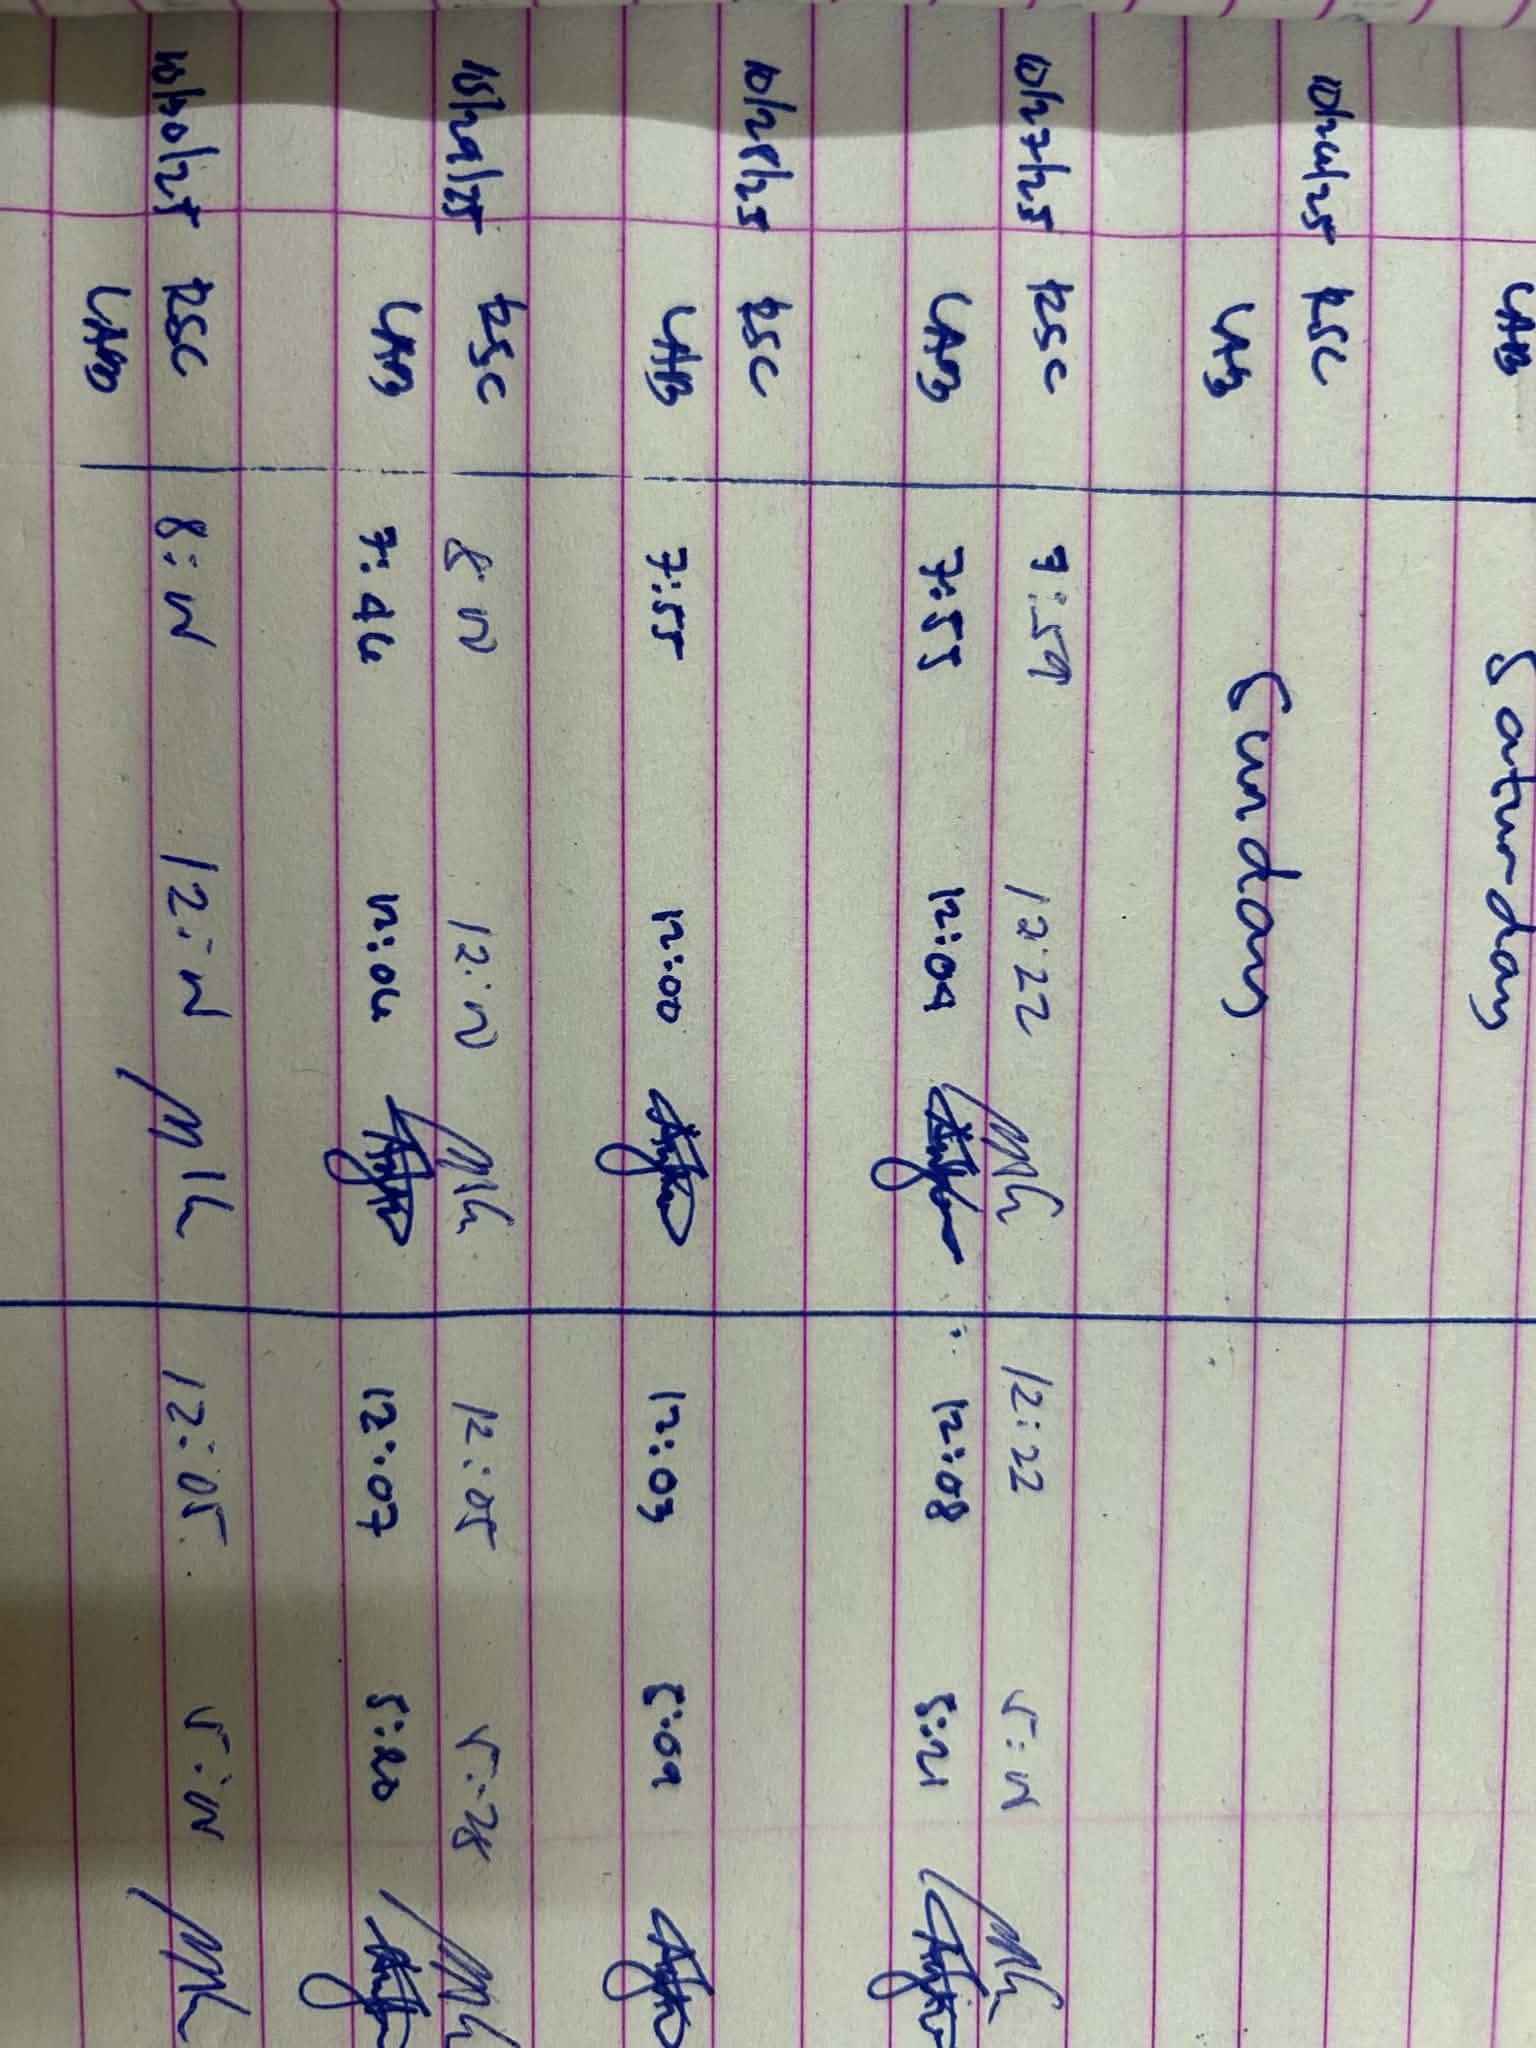 LAB Saturday
10/26/25 RSC
LAB Sunday
10/27/25 RSC 7:59 12:22 12:22
LAB 7:55 12:09 12:08 5:21
10/28/25 RSC
LAB 7:55 12:00 12:03 5:09
10/29/25 RSC 12:05 5:28
LAB 7:46 12:06 12:07 5:20
10/30/25 RSC 12:05
LAB